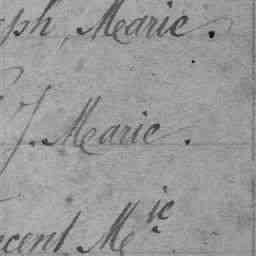 ph Marie.
J. Marie.
cent M.ie